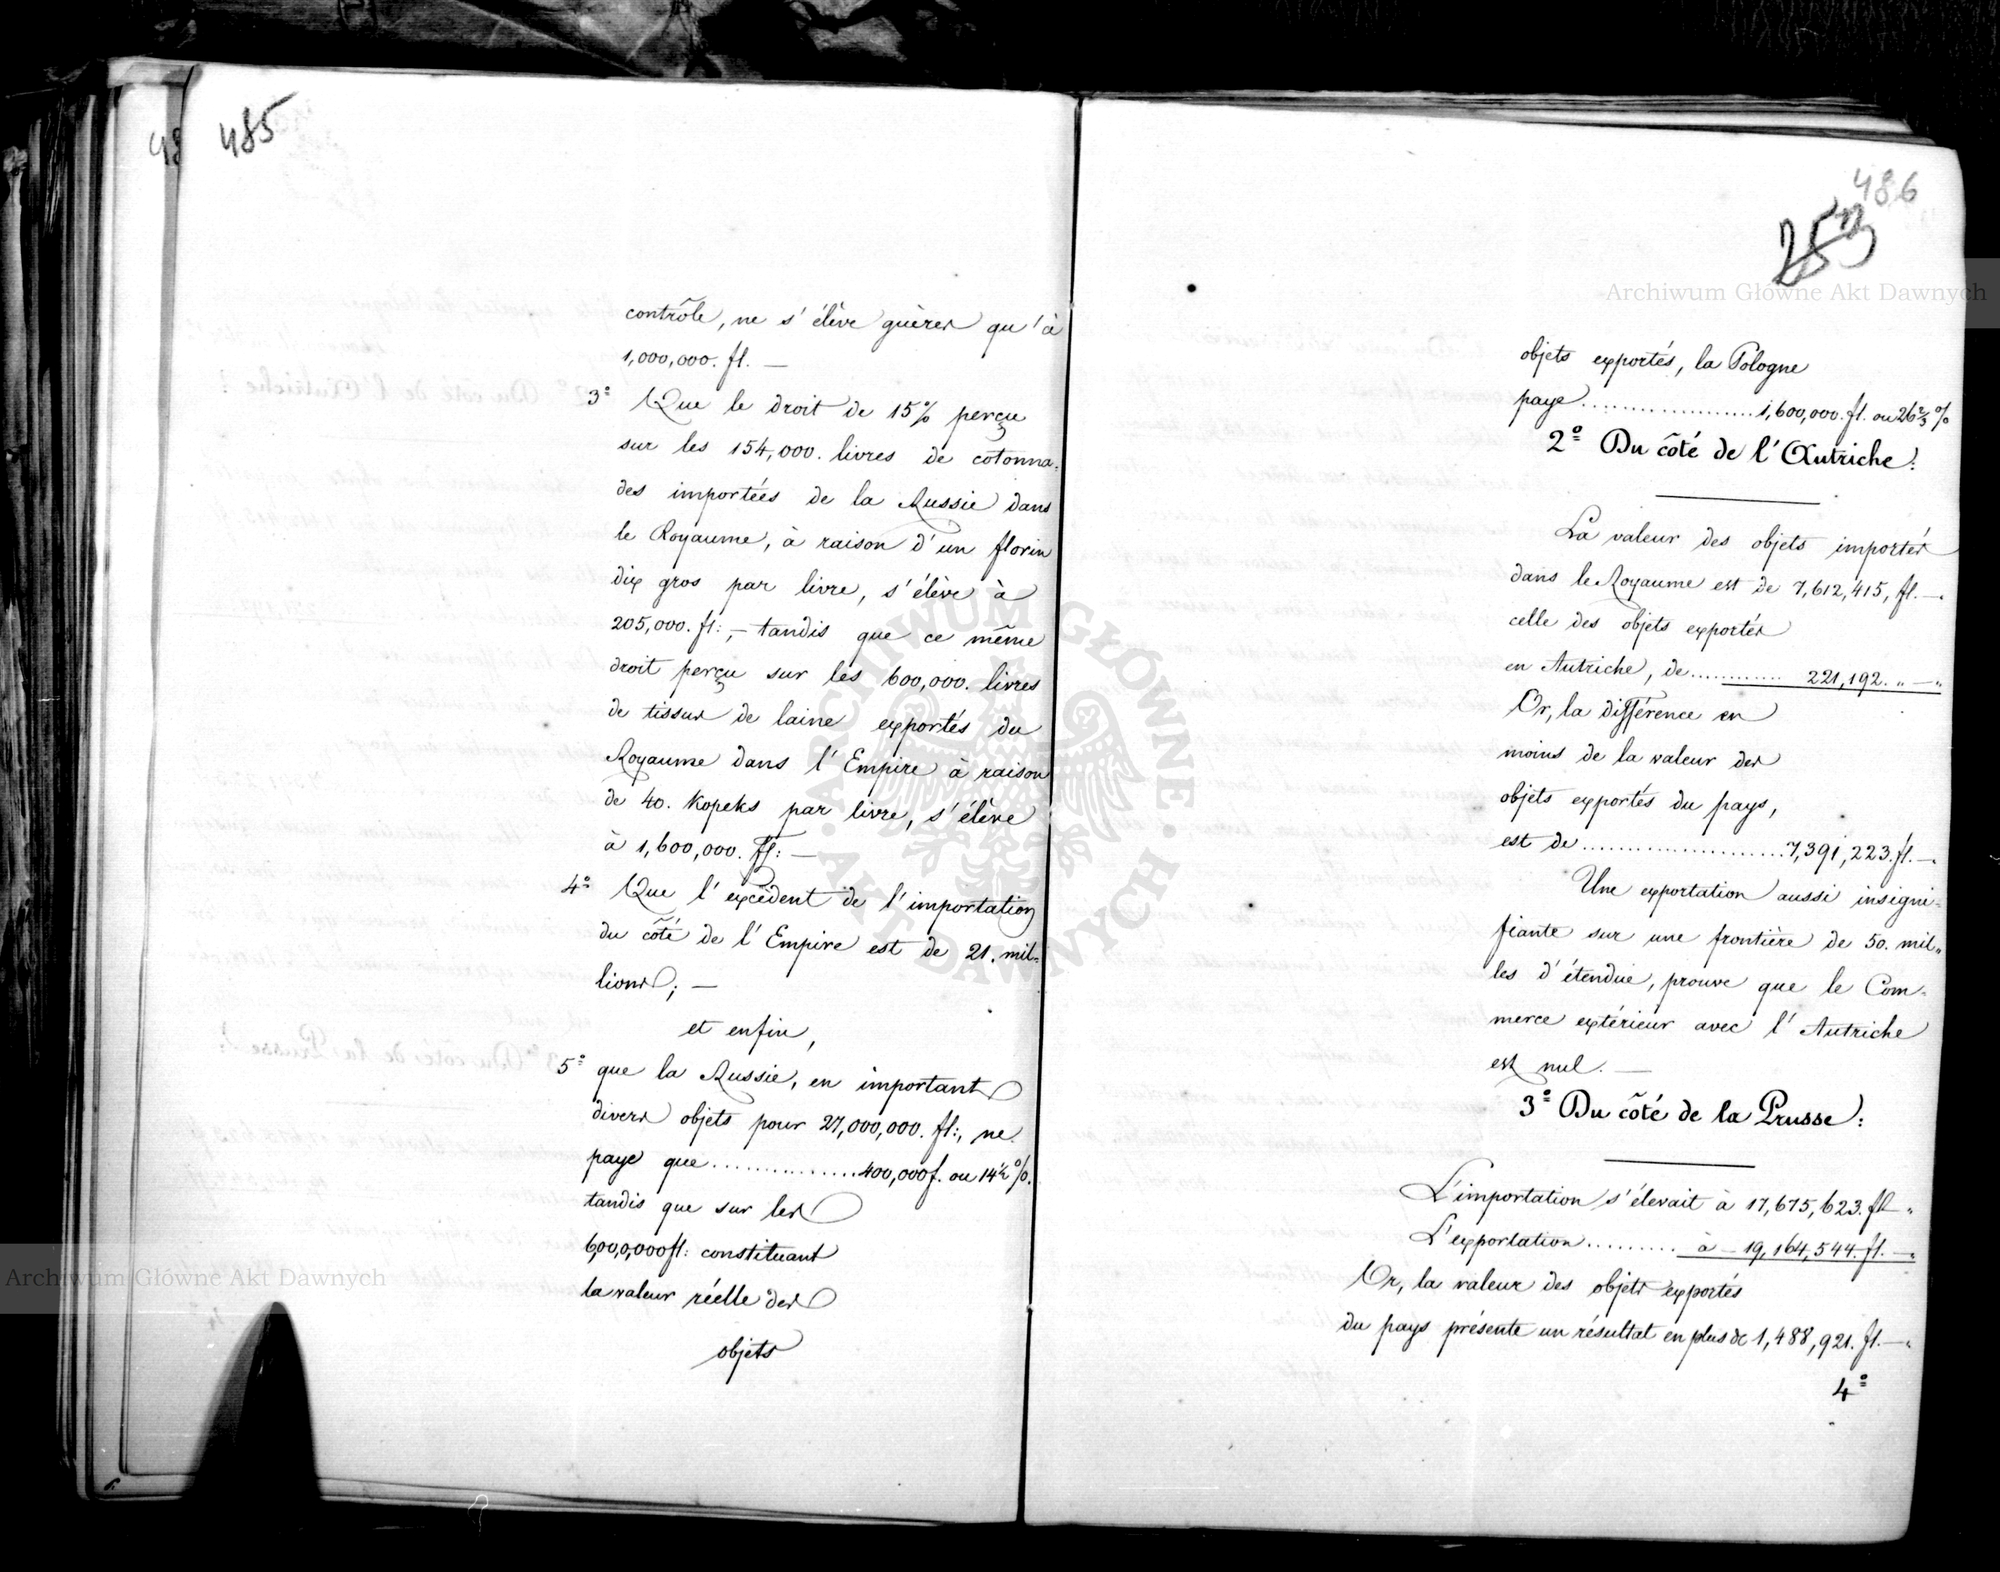 485
contrôle, ne s'élève guères qu'à
1,000,000. fl. —
3º Que le droit de 15% perçu
sur les 154,000. livres de cotonna-
des importées de la Russie dans
le Royaume, à raison d'un florin
dix gros par livre, s'élève à
205,000. fl:, — tandis que ce même
droit perçu sur les 600,000. livres
de tissus de laine exportés du
Royaume dans l'Empire à raison
de 40. Kopeks par livre, s'élève
à 1,600,000. fl: —
4º Que l'excédent de l'importation
du côté de l'Empire est de 21. mil-
lions; —
et enfin,
5º que la Russie, en important
divers objets pour 27,000,000. fl:, ne
paye que .............. 400,000 f. ou 14½ %.
tandis que sur les
6,000,000 fl: constituant
la valeur réelle des
objets
486
253
objets exportés, la Pologne
paye ................... 1,600,000. fl. ou 26⅔ %
2º Du côté de l'Autriche:
La valeur des objets importés
dans le Royaume est de 7,612,415, fl. —
celle des objets exportés
en Autriche, de ............ 221,192. " — "
Or, la différence en
moins de la valeur des
objets exportés du pays,
est de ...................... 7,391,223. fl. —
Une exportation aussi insigni-
fiante sur une frontière de 50. mil-
les d'étendue, prouve que le Com-
merce extérieur avec l'Autriche
est nul. —
3º Du côté de la Prusse:
L'importation s'élevait à 17,675,623. fl — "
L'exportation .......... à — 19,164,544. fl. — "
Or, la valeur des objets exportés
du pays présente un résultat en plus de 1,488,921. fl. — "
4º
Archiwum Główne Akt Dawnych
Archiwum Główne Akt Dawnych
ARCHIWUM GŁÓWNE · AKT DAWNYCH ·